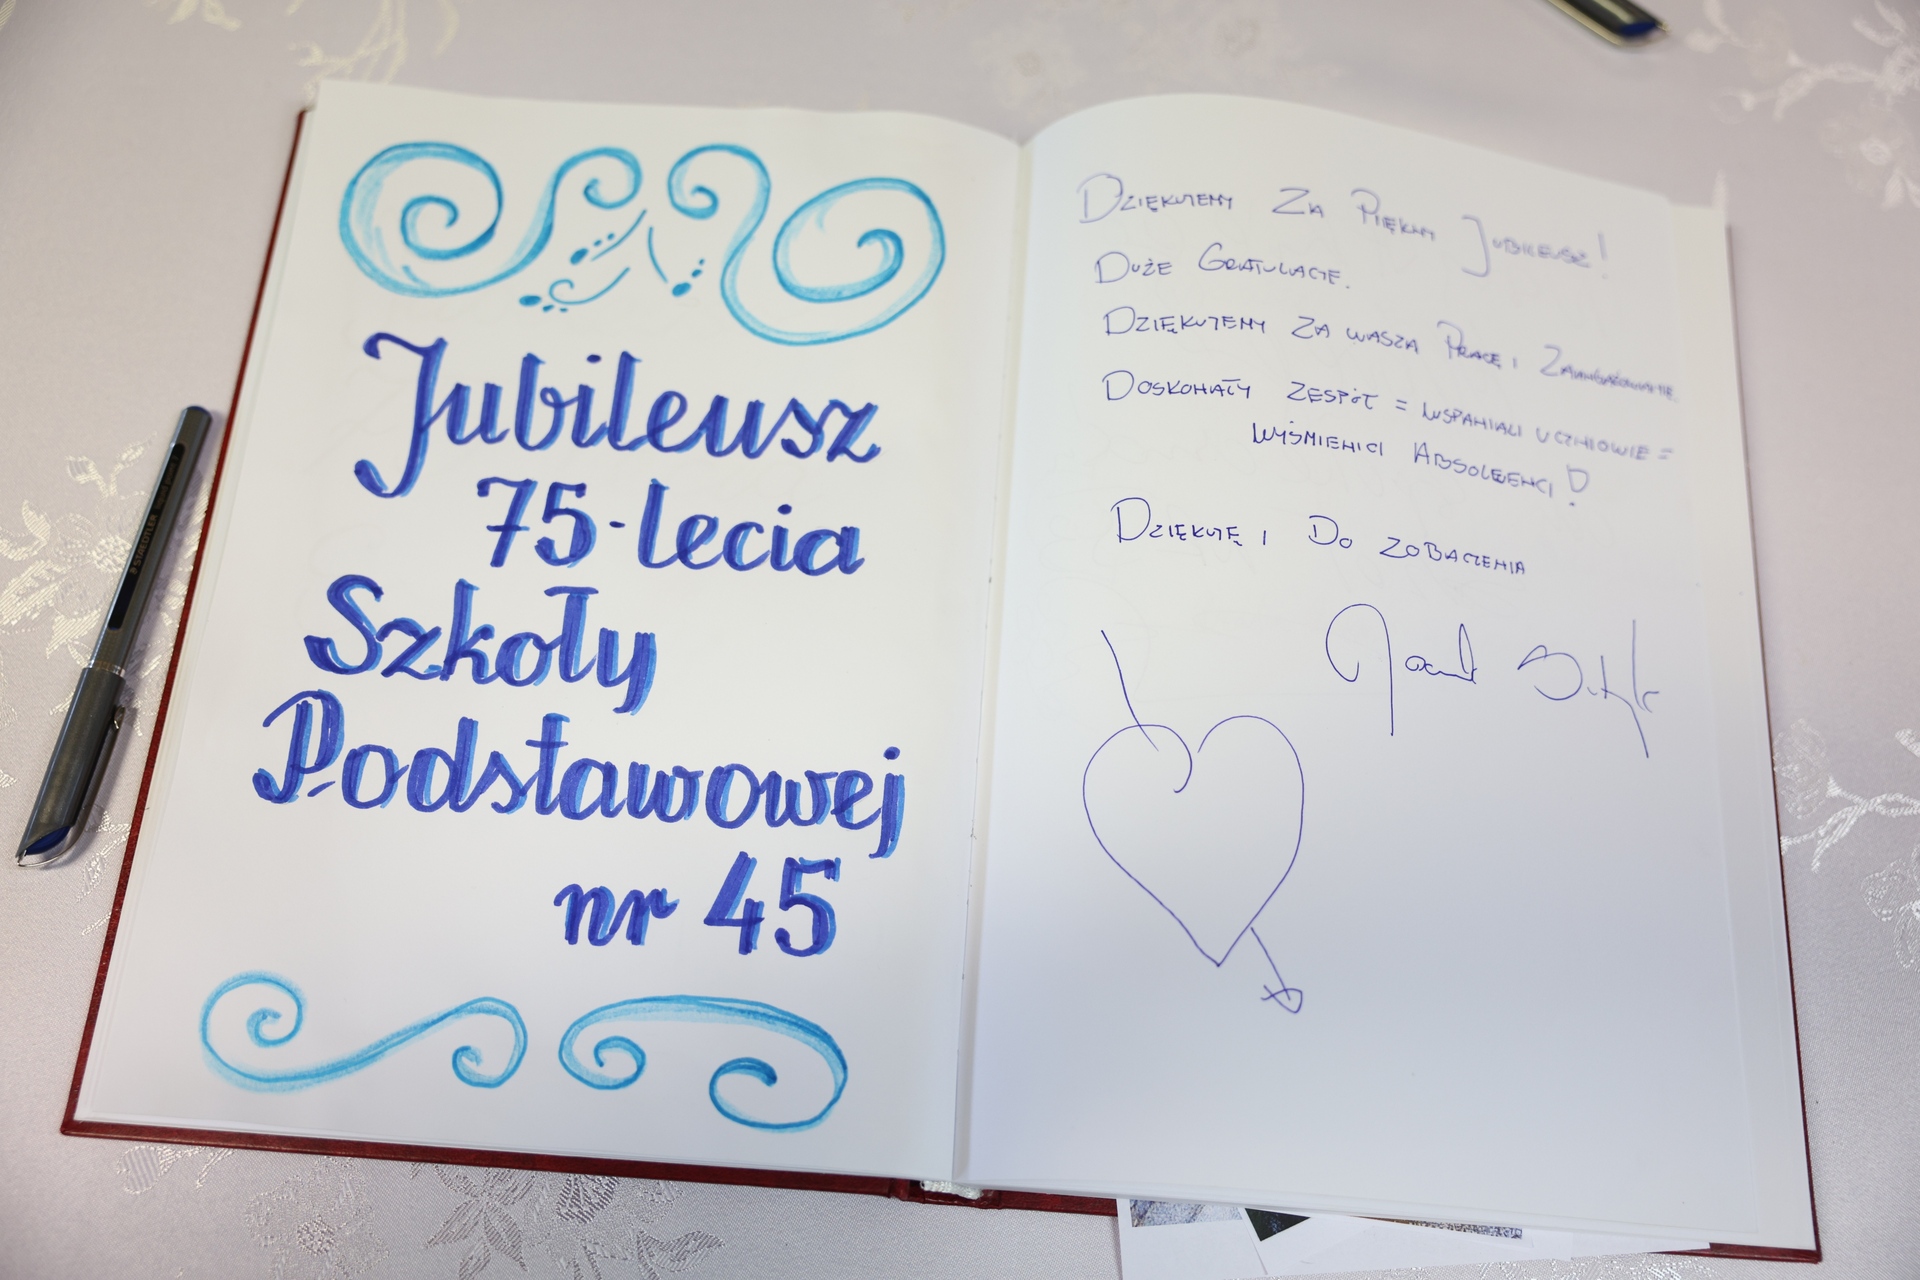 Jubileusz
75-lecia
Szkoły
Podstawowej
nr 45
DZIĘKUJEMY ZA PIĘKNY JUBILEUSZ!
DUŻE GRATULACJE.
DZIĘKUJEMY ZA WASZA PRACĘ I ZAANGAŻOWANIE.
DOSKONAŁY ZESPÓŁ = WSPANIALI UCZNIOWIE =
WYŚMIENICI ABSOLWENCI!
DZIĘKUJĘ I DO ZOBACZENIA
STAEDTLER